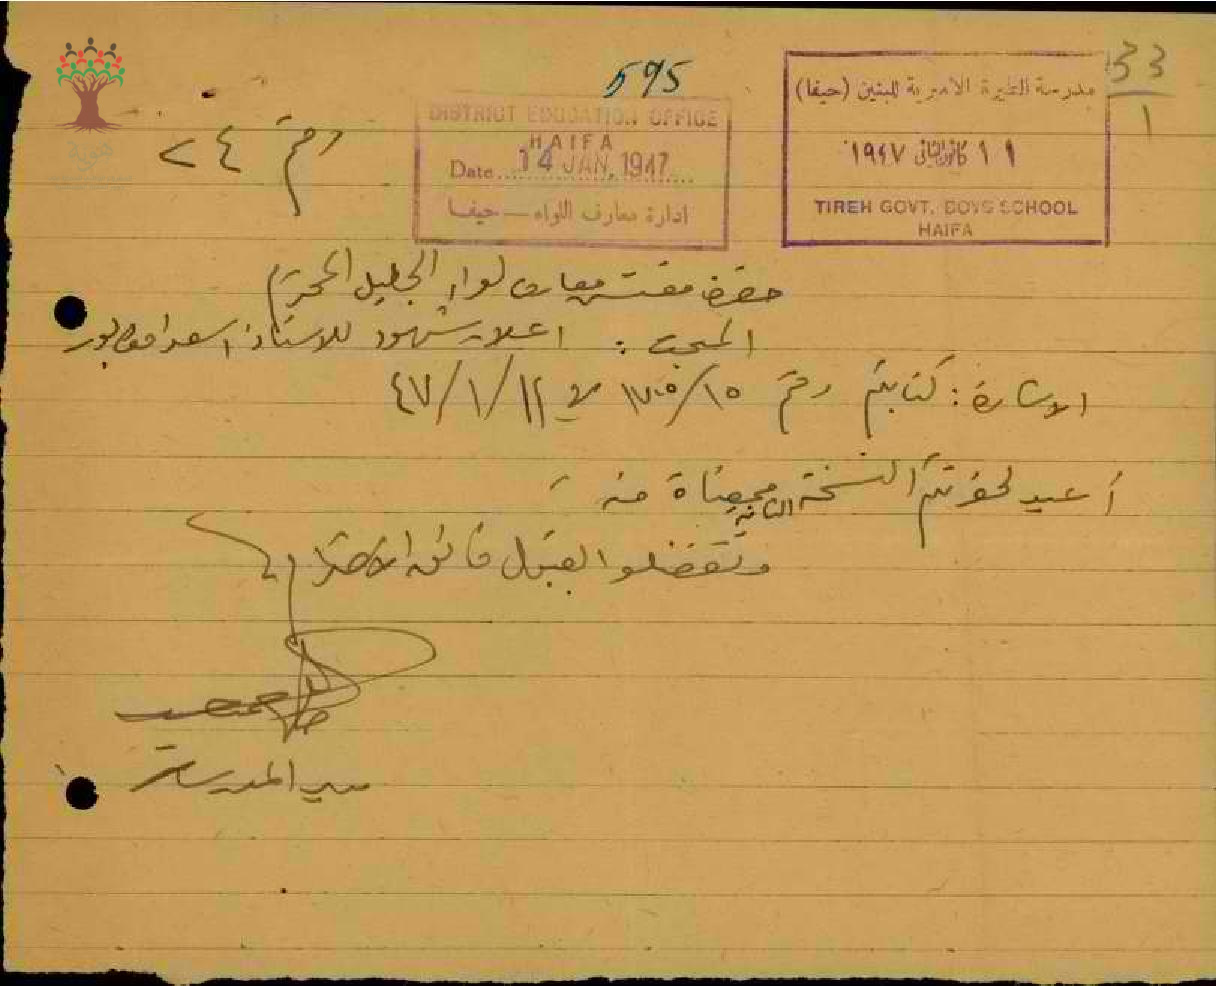 595
33
1
مدرسة الطيرة الاميرية للبنين (حيفا)
١١ كانون الثاني ١٩٤٧
TIREH GOVT. BOYS SCHOOL
HAIFA
DISTRICT EDUCATION OFFICE
HAIFA
Date 14 JAN. 1947
ادارة معارف اللواء — حيفا
رقم ٢٤
حضرة مفتش معارف لواء الجليل المحترم
المبحث : اعلان شهود للاستاذ اسعد
الاشارة : كتابكم رقم ١٥/ ١١/١/٤٧
أعيد لحضرتكم النسخة الثانية ممضاة منه
وتفضلوا بقبول فائق الاحترام
مدير المدرسة